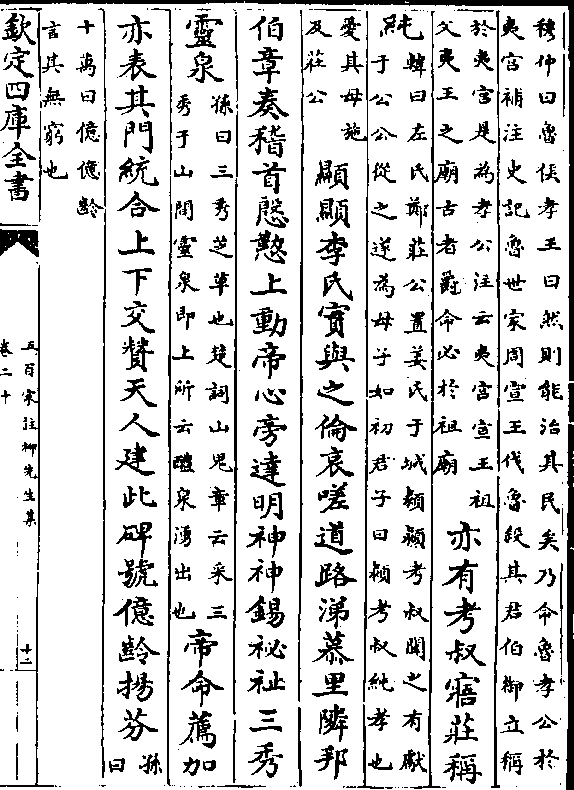 穆仲曰魯侯孝王曰然則能治其民矣乃命魯孝公於
夷宫補注史記魯世家周宣王伐魯殺其君伯御立稱
於夷宫是為孝公注云夷宫宣王祖
父夷王之廟古者爵命必於祖廟
亦有考叔寤莊稱
純韓曰左氏鄭莊公置姜氏于城潁潁考叔聞之有獻
于公公從之遂為母子如初君子曰潁考叔純孝也
愛其母施
及莊公
顯顯李氏實與之倫哀嗟道路涕慕里隣邦
伯章奏稽首慇懃上動帝心旁達明神神錫祕祉三秀
靈泉
孫曰三秀芝草也楚詞山鬼章云采三
秀于山間靈泉即上所云醴泉湧出也
帝命薦加
亦表其門統合上下交贊天人建此碑號億齡揚芬
孫
曰
十萬曰億億齡
言其無窮也
欽定四庫全書
五百家註柳先生集
卷二十
十二